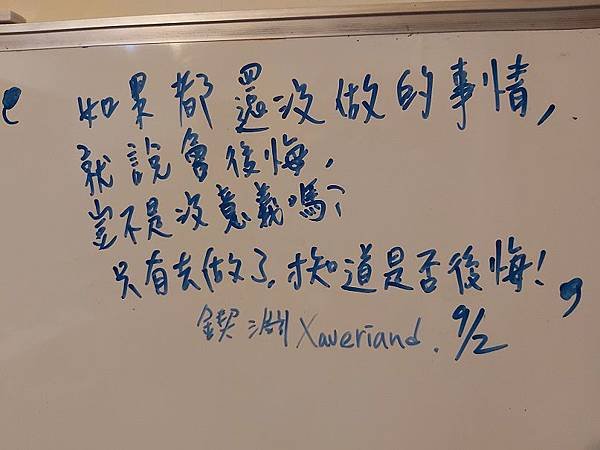 如果都還沒做的事情,
就說會後悔,
豈不是沒意義嗎?
只有去做了,才知道是否後悔!
鍥淵 Xaveriand. 9/2